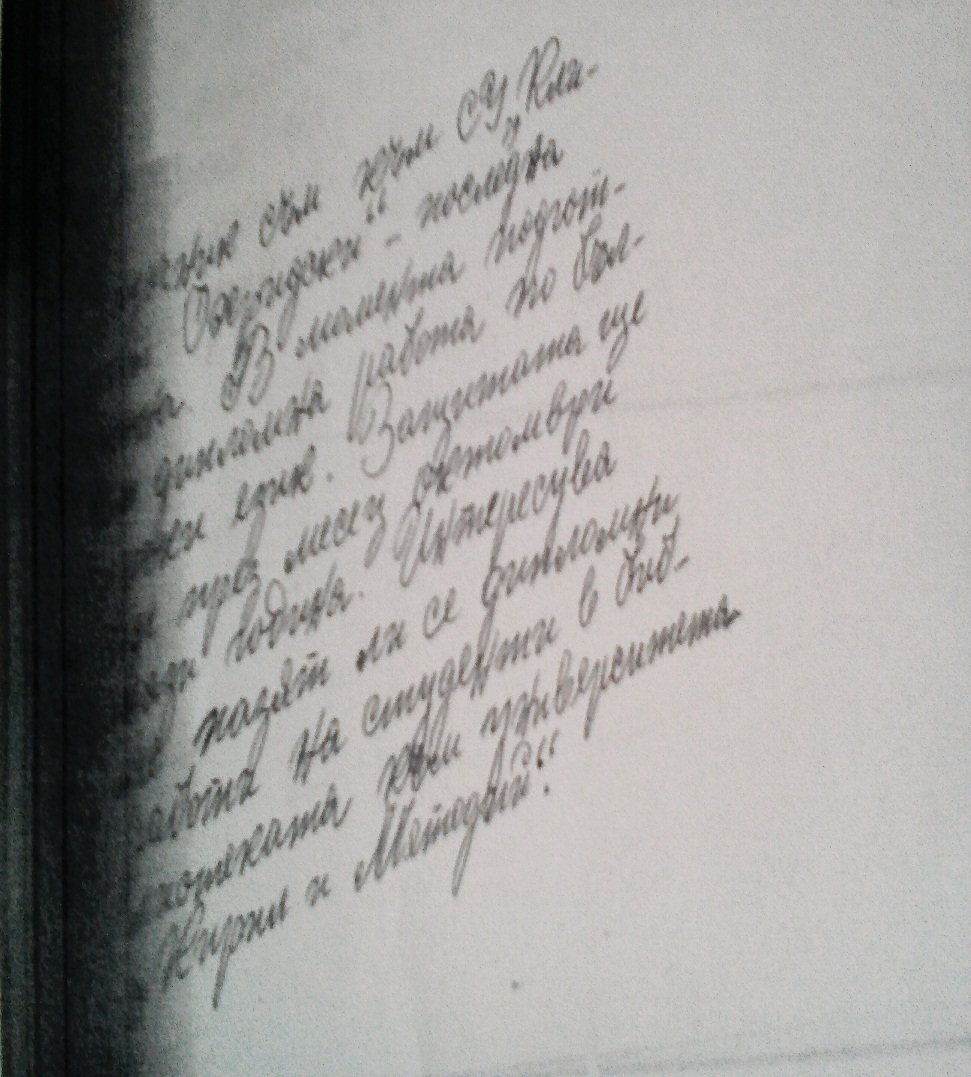 съм към СУ "Кли-
Охридски" - последна
В момента подгот-
дипломна работа по бъл-
език. Защитата ще
през месец октомври
година. Интересува
пазят ли се дипломни
работи на студенти в биб-
лиотеката към университета
Кирил и Методий".